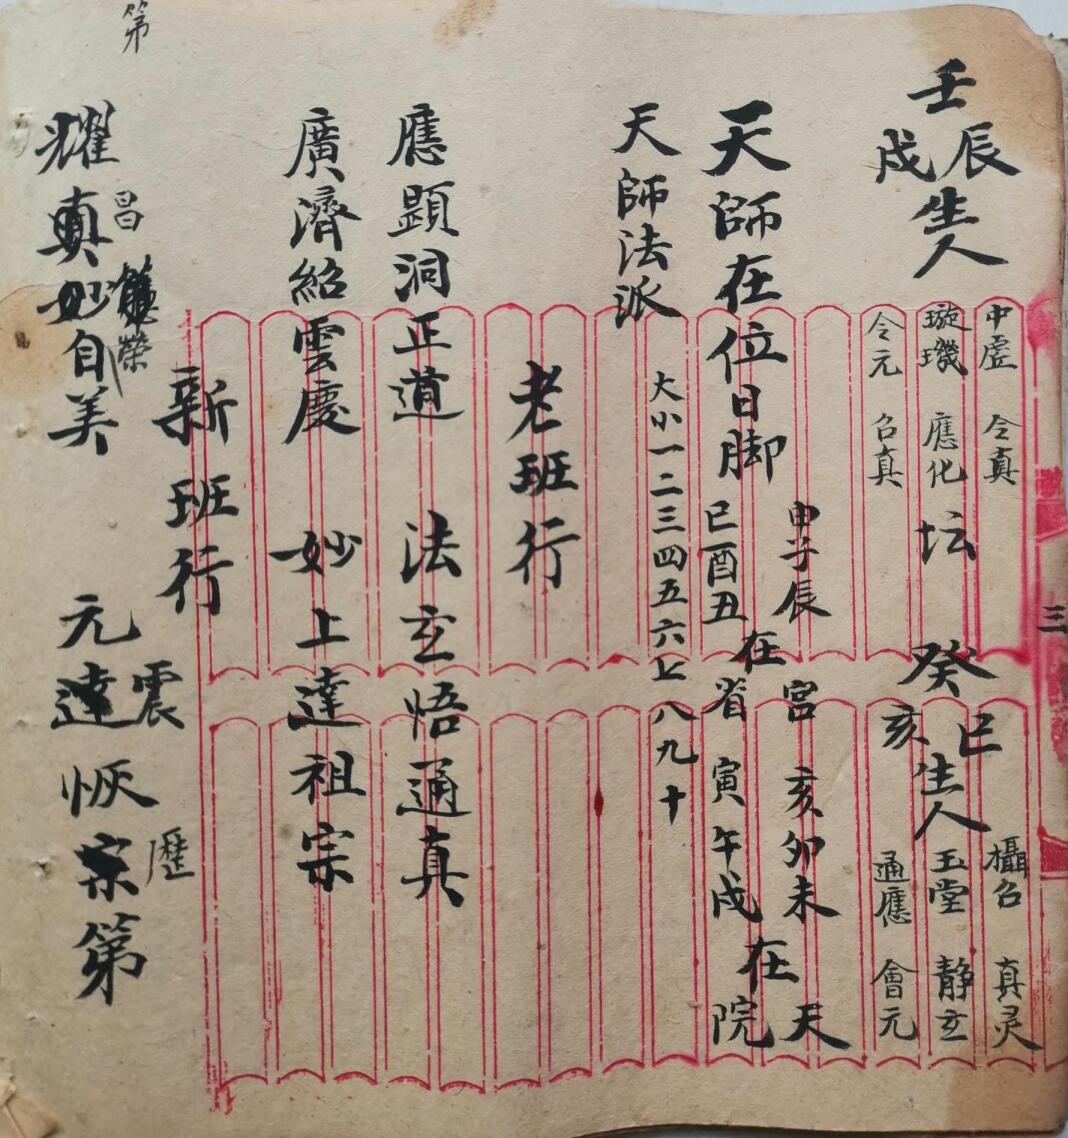 壬辰戌生人
中虛 令真
璇璣 應化
令元 召真
坛
癸巳亥生人
攝召 真灵
玉堂 静玄
通應 會元
天師在位日脚
申子辰 在宮 亥卯未 在天
巳酉丑 在省 寅午戌 在院
天師法派
大小一二三四五六七八九十
老班行
應顯洞正道 法玄悟通真
廣濟紹雲慶 妙上達祖宗
新班行
昌 榮 震 歷
耀真妙自美 元達恢宗第
第
三